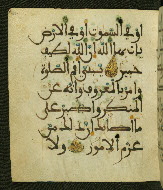 او في السموت او في الارض
يات بها الله ان الله لطيف
خبير يبني اقم الصلوة
وامر بالمعروف وانه عن
المنكر واصبر على
ما اصابك ان ذلك من
عزم الامور ولا